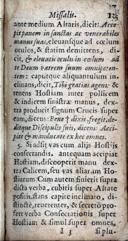 Missalis.
ante medium Altaris, dicit, Acce-
pit panem in sanctas ac venerabiles
manus suas, eleuansque ad cœlum
oculos, & statim demittens, di-
cit, & eleuatis oculis in cœlum ad
te Deum Patrem suum omnipoten-
tem: caputque aliquantulum in-
clinans, dicit, Tibi gratias agens: &
tenens Hostiam inter pollicem
& indicem sinistræ manus, dex-
tra producit signum Crucis super
eam, dicens: Bene ✠ dixit, fregit, de-
ditque Discipulis suis, dicens: Acci-
pite & manducate ex hoc omnes.
Si adsit vas cum alijs Hostijs
consecrandis, antequam accipiat
Hostiam, discooperit manu dex-
tra Calicem, seu vas aliarum Ho-
stiarum. Cum autem finierit supra
dicta verba, cubitis super Altare
positis, stans capite inclinato, di-
stincte, reuerenter, & secreto pro-
fert verba Consecrationis super
Hostiam & simul super omnes,